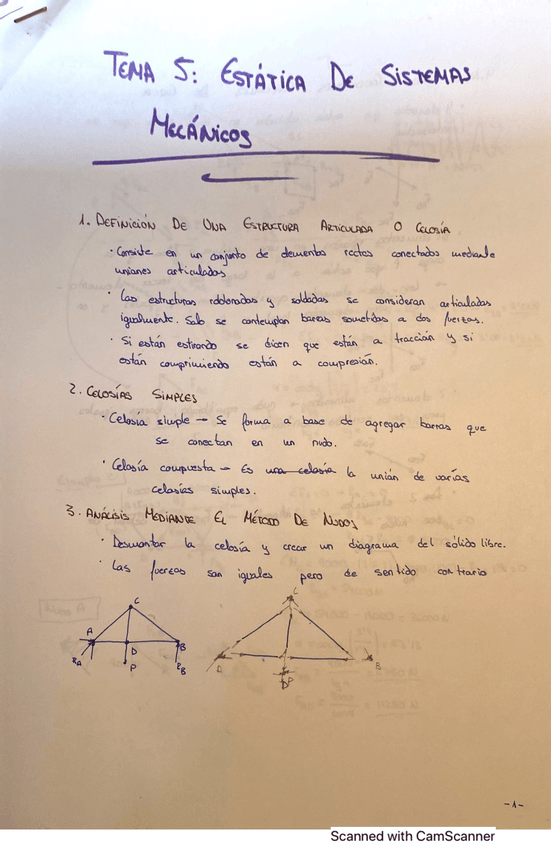 TEMA 5: ESTÁTICA DE SISTEMAS
MECÁNICOS
1. DEFINICIÓN DE UNA ESTRUCTURA ARTICULADA O CELOSÍA
· Consiste en un conjunto de elementos rectos conectados mediante
uniones articuladas
· Las estructuras roblonadas y soldadas se consideran articuladas
igualmente. Solo se contemplan barras sometidas a dos fuerzas.
· Si están estirando se dicen que están a tracción y si
están comprimiendo están a compresión.
2. CELOSÍAS SIMPLES
· Celosía simple – Se forma a base de agregar barras que
se conectan en un nudo.
· Celosía compuesta – Es una celosía la unión de varias
celosías simples.
3. ANÁLISIS MEDIANTE EL MÉTODO DE NUDOS
· Desmontar la celosía y crear un diagrama del sólido libre.
· Las fuerzas son iguales pero de sentido contrario
C
A
B
D
RA
P
RB
C
A
B
D
P
-1-
Scanned with CamScanner